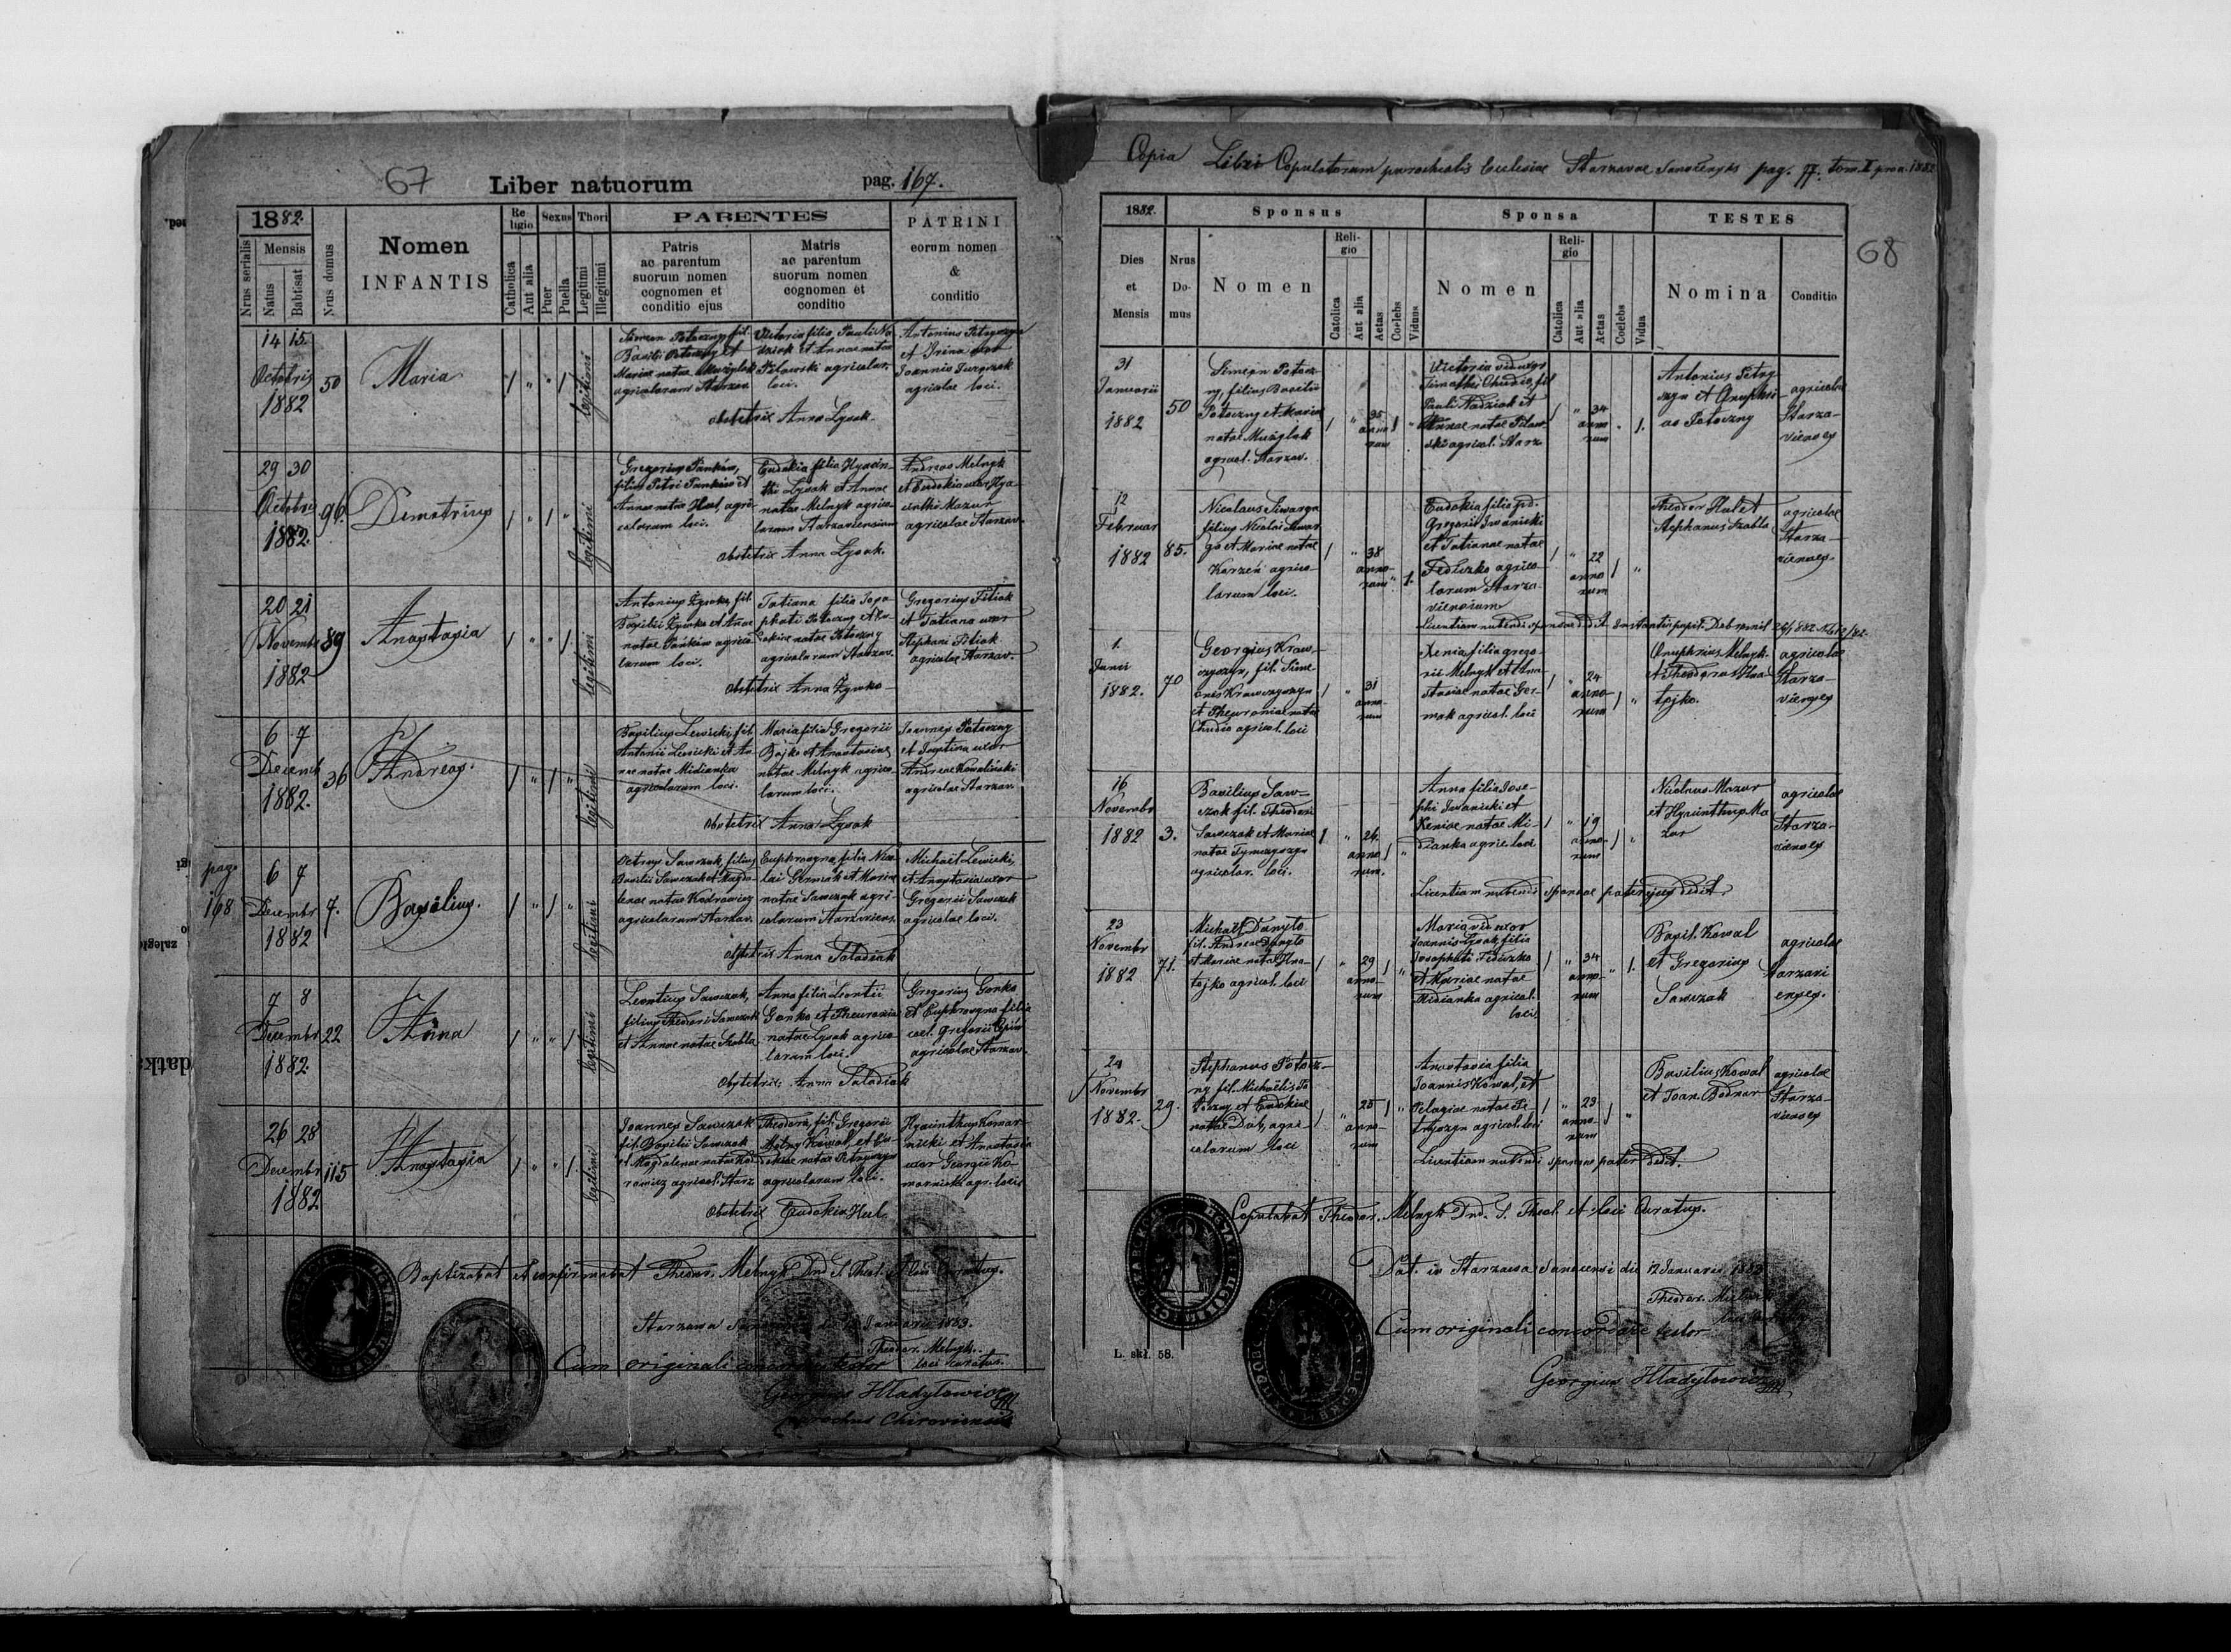 67
Liber natuorum
pag. 167.
1882.
Nrus serialis
Mensis
Natus
Babtisat
Nrus domus
Nomen
INFANTIS
Religio
Catholica
Aut alia
Sexus
Puer
Puella
Thori
Legitimi
Illegitimi
PARENTES
Patris
ac parentum
suorum nomen
cognomen et
conditio ejus
Matris
ac parentum
suorum nomen
cognomen et
conditio
PATRINI
eorum nomen
&
conditio
14 15.
Octobris
1882
50
Maria
legitimi
Simeon Potoczny fil.
Basilii Potoczny et
Mariae natae Muzylak
agricolarum Starzav.
Victoria filia Pauli Na-
dziak et Annae natae
Pilawski agricolar.
loci.
Antonius Petryszyn
et Irina uxor
Joannis Juryczak
agricolae loci.
obstetrix Anna Lysak.
29 30
Octobris
1882.
96.
Demetrius
legitimi
Gregorius Pańków,
filius Petri Pańków et
Annae natae Hul, agri-
colarum loci.
Eudokia filia Hyacin-
thi Lysak et Annae
natae Melnyk agrico-
larum Starzaviensium
Andreas Melnyk
et Eudokia uxor Hya-
cinthi Mazur
agricolae Starzav.
Obstetrix Anna Lysak.
20 21
Novembr
1882
89
Anastasia
legitimi
Antonius Żywko, fil.
Basilii Żywko et Annae
natae Pańków agrico-
larum loci.
Tatiana filia Josa-
phati Potoczny et Eu-
dokiae natae Potoczny
agricolarum Starzav.
Gregorius Fitiak
et Tatiana uxor
Stephani Fitiak
agricolae Starzav.
Obstetrix Anna Żywko
6 7
Decemb
1882.
36
Andreas.
legitimi
Basilius Lewicki, fil.
Antonii Lewicki et An-
nae natae Midianka
agricolarum loci.
Maria filia Gregorii
Bojko et Anastasiae
natae Melnyk agrico-
larum loci.
Joannes Potoczny
et Justina uxor
Andreae Kowaliński
agricolae Starzav.
Obstetrix Anna Lysak
pag.
168
6 7
Decembr
1882
7.
Basilius.
legitimi
Petrus Sawczak, filius
Basilii Sawczak et Magda-
lenae natae Kodrowicz
agricolarum Starzav.
Euphrosyna, filia Nico-
lai Germak et Mariae
natae Sawczak agri-
colarum Starzaviens.
Michaël Lewicki,
et Anastasia uxor
Gregorii Sawczak
agricolae loci.
Obstetrix Anna Soladiak
7 8
Decembr
1882.
22
Anna
legitimi
Leontius Sawczak,
filius Theodori Sawczak
et Annae natae Szabla
Anna filia Leontii
Gonko et Theuroniae
natae Lysak agrico-
larum loci.
Gregorius Gonko
et Euphrosyna filia
agricolae Starzav.
Obstetrix Anna Soladiak
26 28
Decembr
1882
115
Anastasia
legitimi
Joannes Sawczak
fil. Basilii Sawczak
et Magdalenae natae Kod-
rowicz agricol. Starz
Theodora, fil. Gregorii
Kowal, et Eu-
dokiae natae Petryszyn
agricolarum loci.
Hyacinthus Komar-
nicki et Anastasia
uxor Georgii Ko-
marnicki agr. loci
Obstetrix Eudokia Hul.
Baptizabat et confirmabat Theodor. Melnyk Dnd S. Theol. et loci Curatus.
Starzawa die Januarii 1883.
Theodor. Melnyk
loci curatus.
Cum originali concordare testor
Georgius Hładyłowicz
parochus Chiroviensis
Copia Libri Copulatorum parochialis Ecclesiae Starzavae Sanocensis pag. 77. tom. II pro a. 1882
68
1882.
Dies
et
Mensis
Nrus
Do-
mus
Sponsus
Nomen
Religio
Catolica
Aut alia
Aetas
Coelebs
Viduus
Sponsa
Nomen
Religio
Catolica
Aut alia
Aetas
Coelebs
Vidua
TESTES
Nomina
Conditio
31
Januarii
1882
50
Simeon Potocz-
ny, filius Basilii
Potoczny et Mariae
natae Muzylak
agricol. Starzav.
35
anno-
rum
Victoria vidua p.
Timothei Chudio, fil
Pauli Nadziak et
Annae natae Pilaw-
ski agricol. Starz
34
anno
rum
Antonius Petry-
szyn et Onuphri-
us Potoczny
agricolae
Starza-
vienses
12
Februar
1882
85.
Nicolaus Siwarga
filius Nicolai Siwar
ga et Mariae natae
Karzeń agrico-
larum loci.
38
anno-
rum
Eudokia filia p.d.
Gregorii Iwanicki
et Tatianae natae
Fedczko agrico-
larum Starza-
viensium
22
anno
rum
Theodor Hul et
Stephanus Szabla
agricolae
Starza-
vienses.
1.
Junii
1882.
70
Georgius Kraw-
czyszyn, fil. Sime-
onis Krawczyszyn
et Theuroniae natae
Chudio agricol. loci
31
anno-
rum
Xenia, filia Grego-
rii Melnyk et Ana-
stasiae natae Ger-
mak agricol. loci
24
anno-
rum
Onuphrius Melnyk.
et Theodorus Hna-
tejko.
agricolae
Starza-
vienses
16
Novembr
1882
3.
Basilius Saw-
czak fil. Theodori
Sawczak et Mariae
natae Tymczyszyn
agricolar. loci.
24.
anno
rum.
Anna filia Jose-
phi Iwanicki et
Xeniae natae Mi-
dianka agric. loci
19
anno-
rum
Nicolaus Mazur
et Hyacinthus Ma
zur
agricolae
Starza-
vienses
Licentiam nubendi sponsae pater ejus dedit
23
Novembr
1882
71.
Michaël Danyło
fil. Andreae Danyło
et Mariae natae Hna-
tejko agricol. loci
29
anno-
rum
Maria vid. uxor
Joannis Lysak, filia
Josaphati Fedczko
et Mariae natae
Midianka agricol.
loci
34
anno-
rum
Basil. Kowal
et Gregorius
Sawczak
agricolae
Starzavi
enses.
24
Novembr
1882.
29.
Stephanus Potocz-
ny, fil. Michaëlis Po
toczny et Eudokiae
natae Dol, agri-
colarum loci
25
anno-
rum
Anastasia filia
Joannis Kowal, et
Pelagiae natae Pe-
tryszyn agricol. loci
23
anno-
rum
Basilius Kowal
et Joan. Bodnar
agricolae
Starza-
vienses
Licentiam nubendi sponsae pater dedit.
Copulabat Theodor. Melnyk Dnd. S. Theol. et loci Curatus.
Dat. in Starzawa Sanocensi die 12 Januarii 1883
Theodor. Melnyk
Cum originali concordare testor
Georgius Hładyłowicz
L. skł. 58.